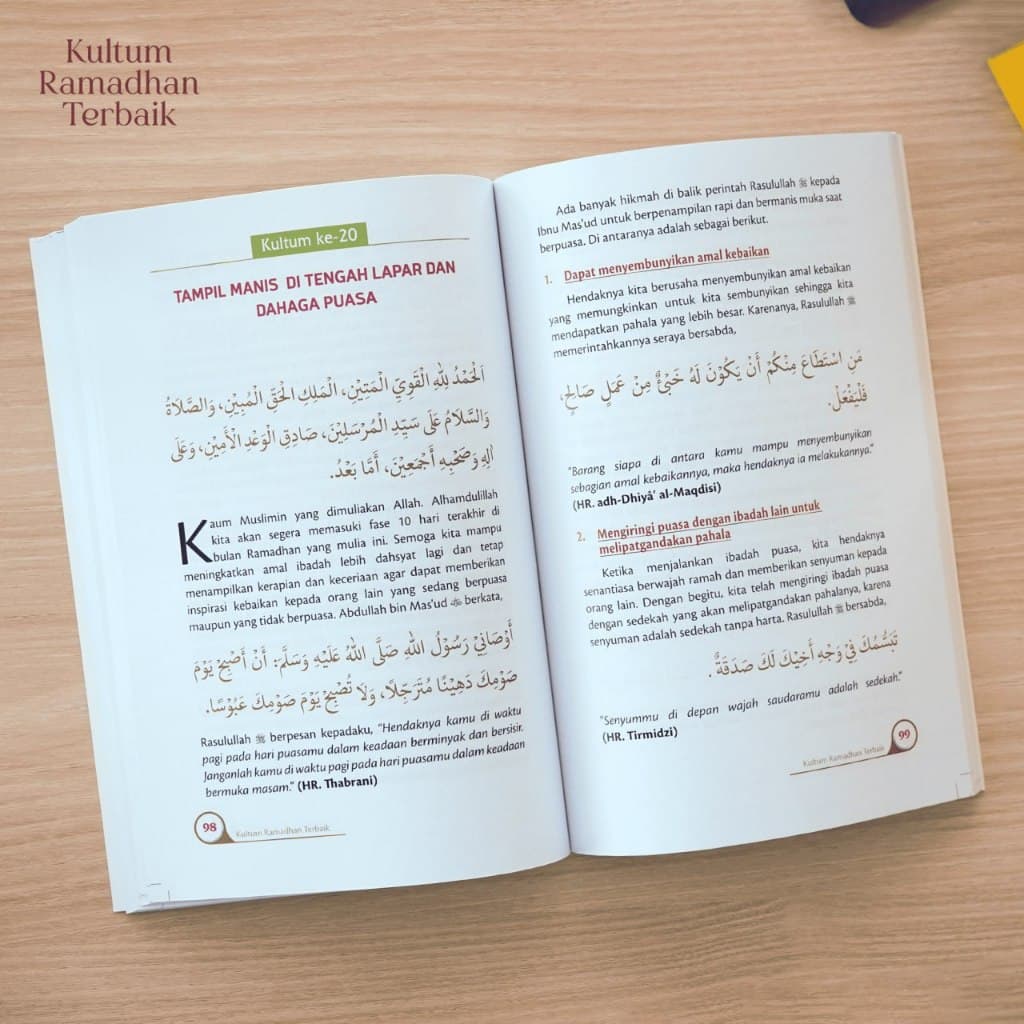 Kultum
Ramadhan
Terbaik
Kultum ke-20
TAMPIL MANIS DI TENGAH LAPAR DAN
DAHAGA PUASA
اَلْحَمْدُ لِلّٰهِ الْقَوِيِّ الْمَتِيْنِ، الْمَلِكِ الْحَقِّ الْمُبِيْنِ، وَالصَّلَاةُ
وَالسَّلَامُ عَلَى سَيِّدِ الْمُرْسَلِيْنَ، صَادِقِ الْوَعْدِ الْأَمِيْنِ، وَعَلَى
اٰلِهِ وَصَحْبِهِ أَجْمَعِيْنَ، أَمَّا بَعْدُ.
Kaum Muslimin yang dimuliakan Allah. Alhamdulillah
kita akan segera memasuki fase 10 hari terakhir di
bulan Ramadhan yang mulia ini. Semoga kita mampu
meningkatkan amal ibadah lebih dahsyat lagi dan tetap
menampilkan kerapian dan keceriaan agar dapat memberikan
inspirasi kebaikan kepada orang lain yang sedang berpuasa
maupun yang tidak berpuasa. Abdullah bin Mas'ud berkata,
أَوْصَانِيْ رَسُوْلُ اللهِ صَلَّى اللهُ عَلَيْهِ وَسَلَّمَ: أَنْ أَصْبِحْ يَوْمَ
صَوْمِكَ دَهِيْنًا مُتَرَجِّلًا، وَلَا تُصْبِحْ يَوْمَ صَوْمِكَ عَبُوْسًا.
Rasulullah ﷺ berpesan kepadaku, "Hendaknya kamu di waktu
pagi pada hari puasamu dalam keadaan berminyak dan bersisir.
Janganlah kamu di waktu pagi pada hari puasamu dalam keadaan
bermuka masam." (HR. Thabrani)
98 Kultum Ramadhan Terbaik
Ada banyak hikmah di balik perintah Rasulullah ﷺ kepada
Ibnu Mas'ud untuk berpenampilan rapi dan bermanis muka saat
berpuasa. Di antaranya adalah sebagai berikut.
1. Dapat menyembunyikan amal kebaikan
Hendaknya kita berusaha menyembunyikan amal kebaikan
yang memungkinkan untuk kita sembunyikan sehingga kita
mendapatkan pahala yang lebih besar. Karenanya, Rasulullah ﷺ
memerintahkannya seraya bersabda,
مَنِ اسْتَطَاعَ مِنْكُمْ أَنْ يَكُوْنَ لَهُ خَبِئٌ مِنْ عَمَلٍ صَالِحٍ،
فَلْيَفْعَلْ.
"Barang siapa di antara kamu mampu menyembunyikan
sebagian amal kebaikannya, maka hendaknya ia melakukannya."
(HR. adh-Dhiyâ' al-Maqdisi)
2. Mengiringi puasa dengan ibadah lain untuk
melipatgandakan pahala
Ketika menjalankan ibadah puasa, kita hendaknya
senantiasa berwajah ramah dan memberikan senyuman kepada
orang lain. Dengan begitu, kita telah mengiringi ibadah puasa
dengan sedekah yang akan melipatgandakan pahalanya, karena
senyuman adalah sedekah tanpa harta. Rasulullah ﷺ bersabda,
تَبَسُّمُكَ فِيْ وَجْهِ أَخِيْكَ لَكَ صَدَقَةٌ.
"Senyummu di depan wajah saudaramu adalah sedekah."
(HR. Tirmidzi)
Kultum Ramadhan Terbaik 99